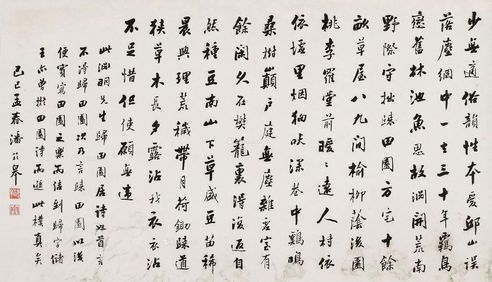 少無適俗韻性本愛邱山誤
落塵網中一去三十年羈鳥
戀舊林池魚思故淵開荒南
野際守拙歸田園方宅十餘
畝草屋八九間榆柳蔭後園
桃李羅堂前曖曖遠人村依
依墟里烟狗吠深巷中雞鳴
桑樹巔戶庭無塵雜虛室有
餘閑久在樊籠裏復得返自
然種豆南山下草盛豆苗稀
晨興理荒穢帶月荷鋤歸道
狹草木長夕露沾我衣衣沾
不足惜但使願無違
此淵明先生歸田園居詩也首言
不得歸田園次乃言歸田園以後
便實寫田園之樂而結到歸字儲
王亦曾擬田園詩而遜此樸真矣
己巳孟春潘齡皋